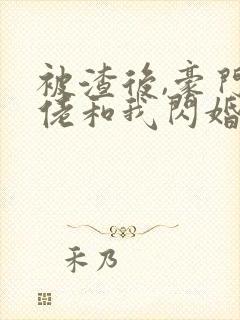 被渣後,豪門
佬和我閃婚
禾乃